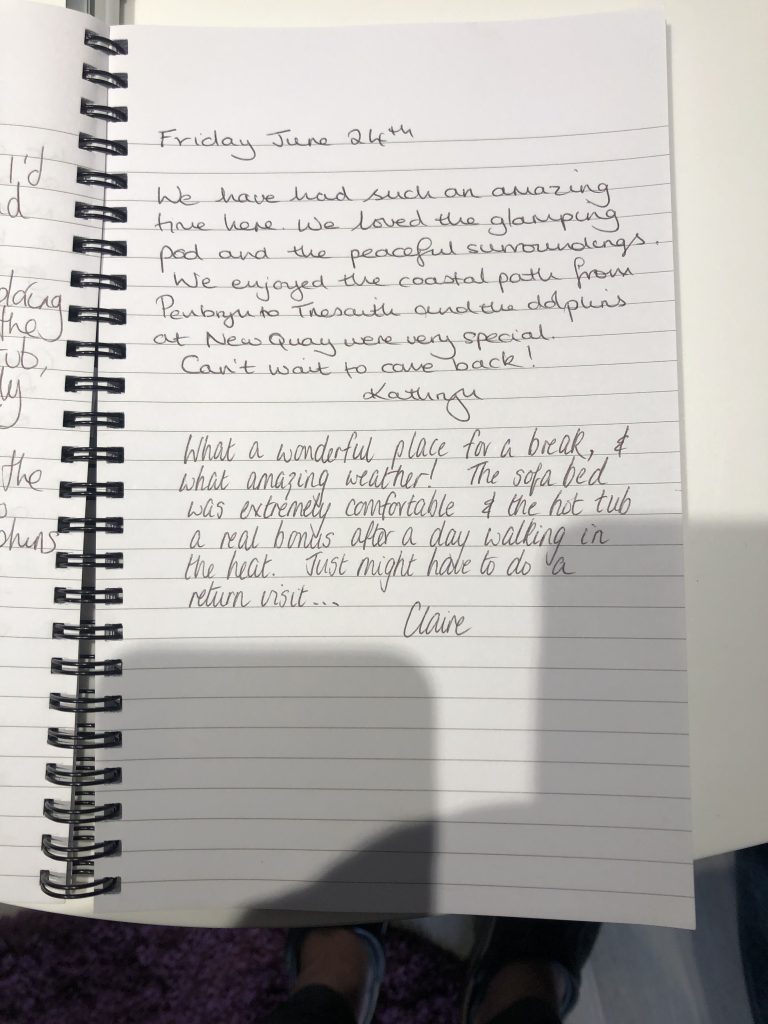 I'd
d
the
tub,
ly
the
Friday June 24th
We have had such an amazing
time here. We loved the glamping
pod and the peaceful surroundings.
We enjoyed the coastal path from
Penbryn to Tresaith and the dolphins
at New Quay were very special.
Can't wait to come back!
Kathryn
What a wonderful place for a break, &
what amazing weather! The sofa bed
was extremely comfortable & the hot tub
a real bonus after a day walking in
the heat. Just might have to do a
return visit...
Claire